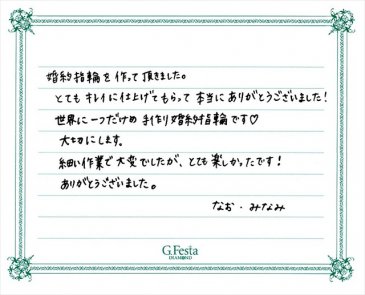 婚約指輪を作って頂きました。
とてもキレイに仕上げてもらって本当にありがとうございました!
世界に一つだけの手作り婚約指輪です♡
大切にします。
細い作業で大変でしたが、とても楽しかったです!
ありがとうございました。
なお・みなみ
G.Festa
DIAMOND